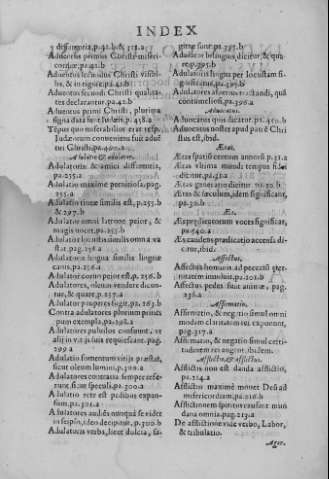 INDEX
dissimilia, pa.41.b.& 318.a
Aduentus primus Christi miseri-
cordiæ, pa.41.b
Aduentus secundus Christi visibi-
lis, & in
Aduentus secundi Christi qualita-
tes declarantur. pa.42.b
Aduentus primi Christi, plurima
signa data sunt Iudæis, p.458.a
Tēpus quo miserabilior erat resp.
Iudæorum conueniens fuit aduē
tui Christi, pa.400.a
Adulator & adulatio.
Adulatoris & amici differentia,
pa.255.a
Adulatio maxime perniciosa, pag.
255.a
Adulatio tineæ similis est, p.255.b
& 297.b
Adulator omni latrone peior, &
magis nocet. pa.255.b
Adulator locustis similis omnia va
stat. pag.256.a
Adulatorum lingua similis linguæ
canis, pa.256.a
Adulator coruo peior est, p.256.b
Adulatores, oleum vendere dicun-
tur, & quare, p.257.a
Adulator pauperes fugit, pa.263.b
Contra adulatores plurium princi
pum exempla, pa.298.a
Adulatores puluinos consuunt, vt
alij in vitijs suis requiescant. pag.
299.a
Adulatio fomentum vitijs præstat,
sicut oleum lumini, p.300.a
Adulatores contraria semper refe-
runt, sicut speculi, pa.300.a
Adulatio rete est pedibus expan-
sum, pa.302.a
Adulatores audiēs nunquā se videt
in seipso, ideo decipitur, p.300.b
Adulatoris verba, licet dulcia, sa-
gittæ sunt. pa.395.b
Adulator bilinguis dicitur, & qua-
re, p.395.b
Adulatoris lingua per locustam si-
gnificatur, pa.396.a
Adulatores aliorum tractandi, quā
contumeliosi, pa.396.a
Aduocatus.
Aduocatus quis dicatur, pa.450.b
Aduocatus noster apud patrē Chri
stus est, ibid.
Ætas.
Ætas iusti centum annorū p.31.a
Ætas vltima mundi tempus fidei
dicitur, pa.31.a
Ætas generatio dicitur pa.32.b
Ætas & seculum, idem significant,
pa.30.b
Æs.
Æs prædicatorum voces significat,
pa.340.a
Æs candens prædicatio accensa di-
citur, ibid.
Affectus.
Affectus hominis ad peccata præ-
teritatem immluit, pa.202.b
Affectus pedes sunt animæ, pag.
238.a
Affirmatio.
Affirmatio, & negatio simul omni
modam claritatem rei exponunt,
pag.317.a
Affirmatio, & negatio simul certi-
tudinem rei augent, ibidem.
Afflictio, & afflictus.
Afflictis non est danda afflictio,
pa.214.a
Afflictus maxime mouet Deū ad
misericordiam. pa.216.b
Afflictionem spiritus causare mun
dana omnia. pag.213.a
De afflictione vide verbo, Labor,
& tribulatio.
Ager.